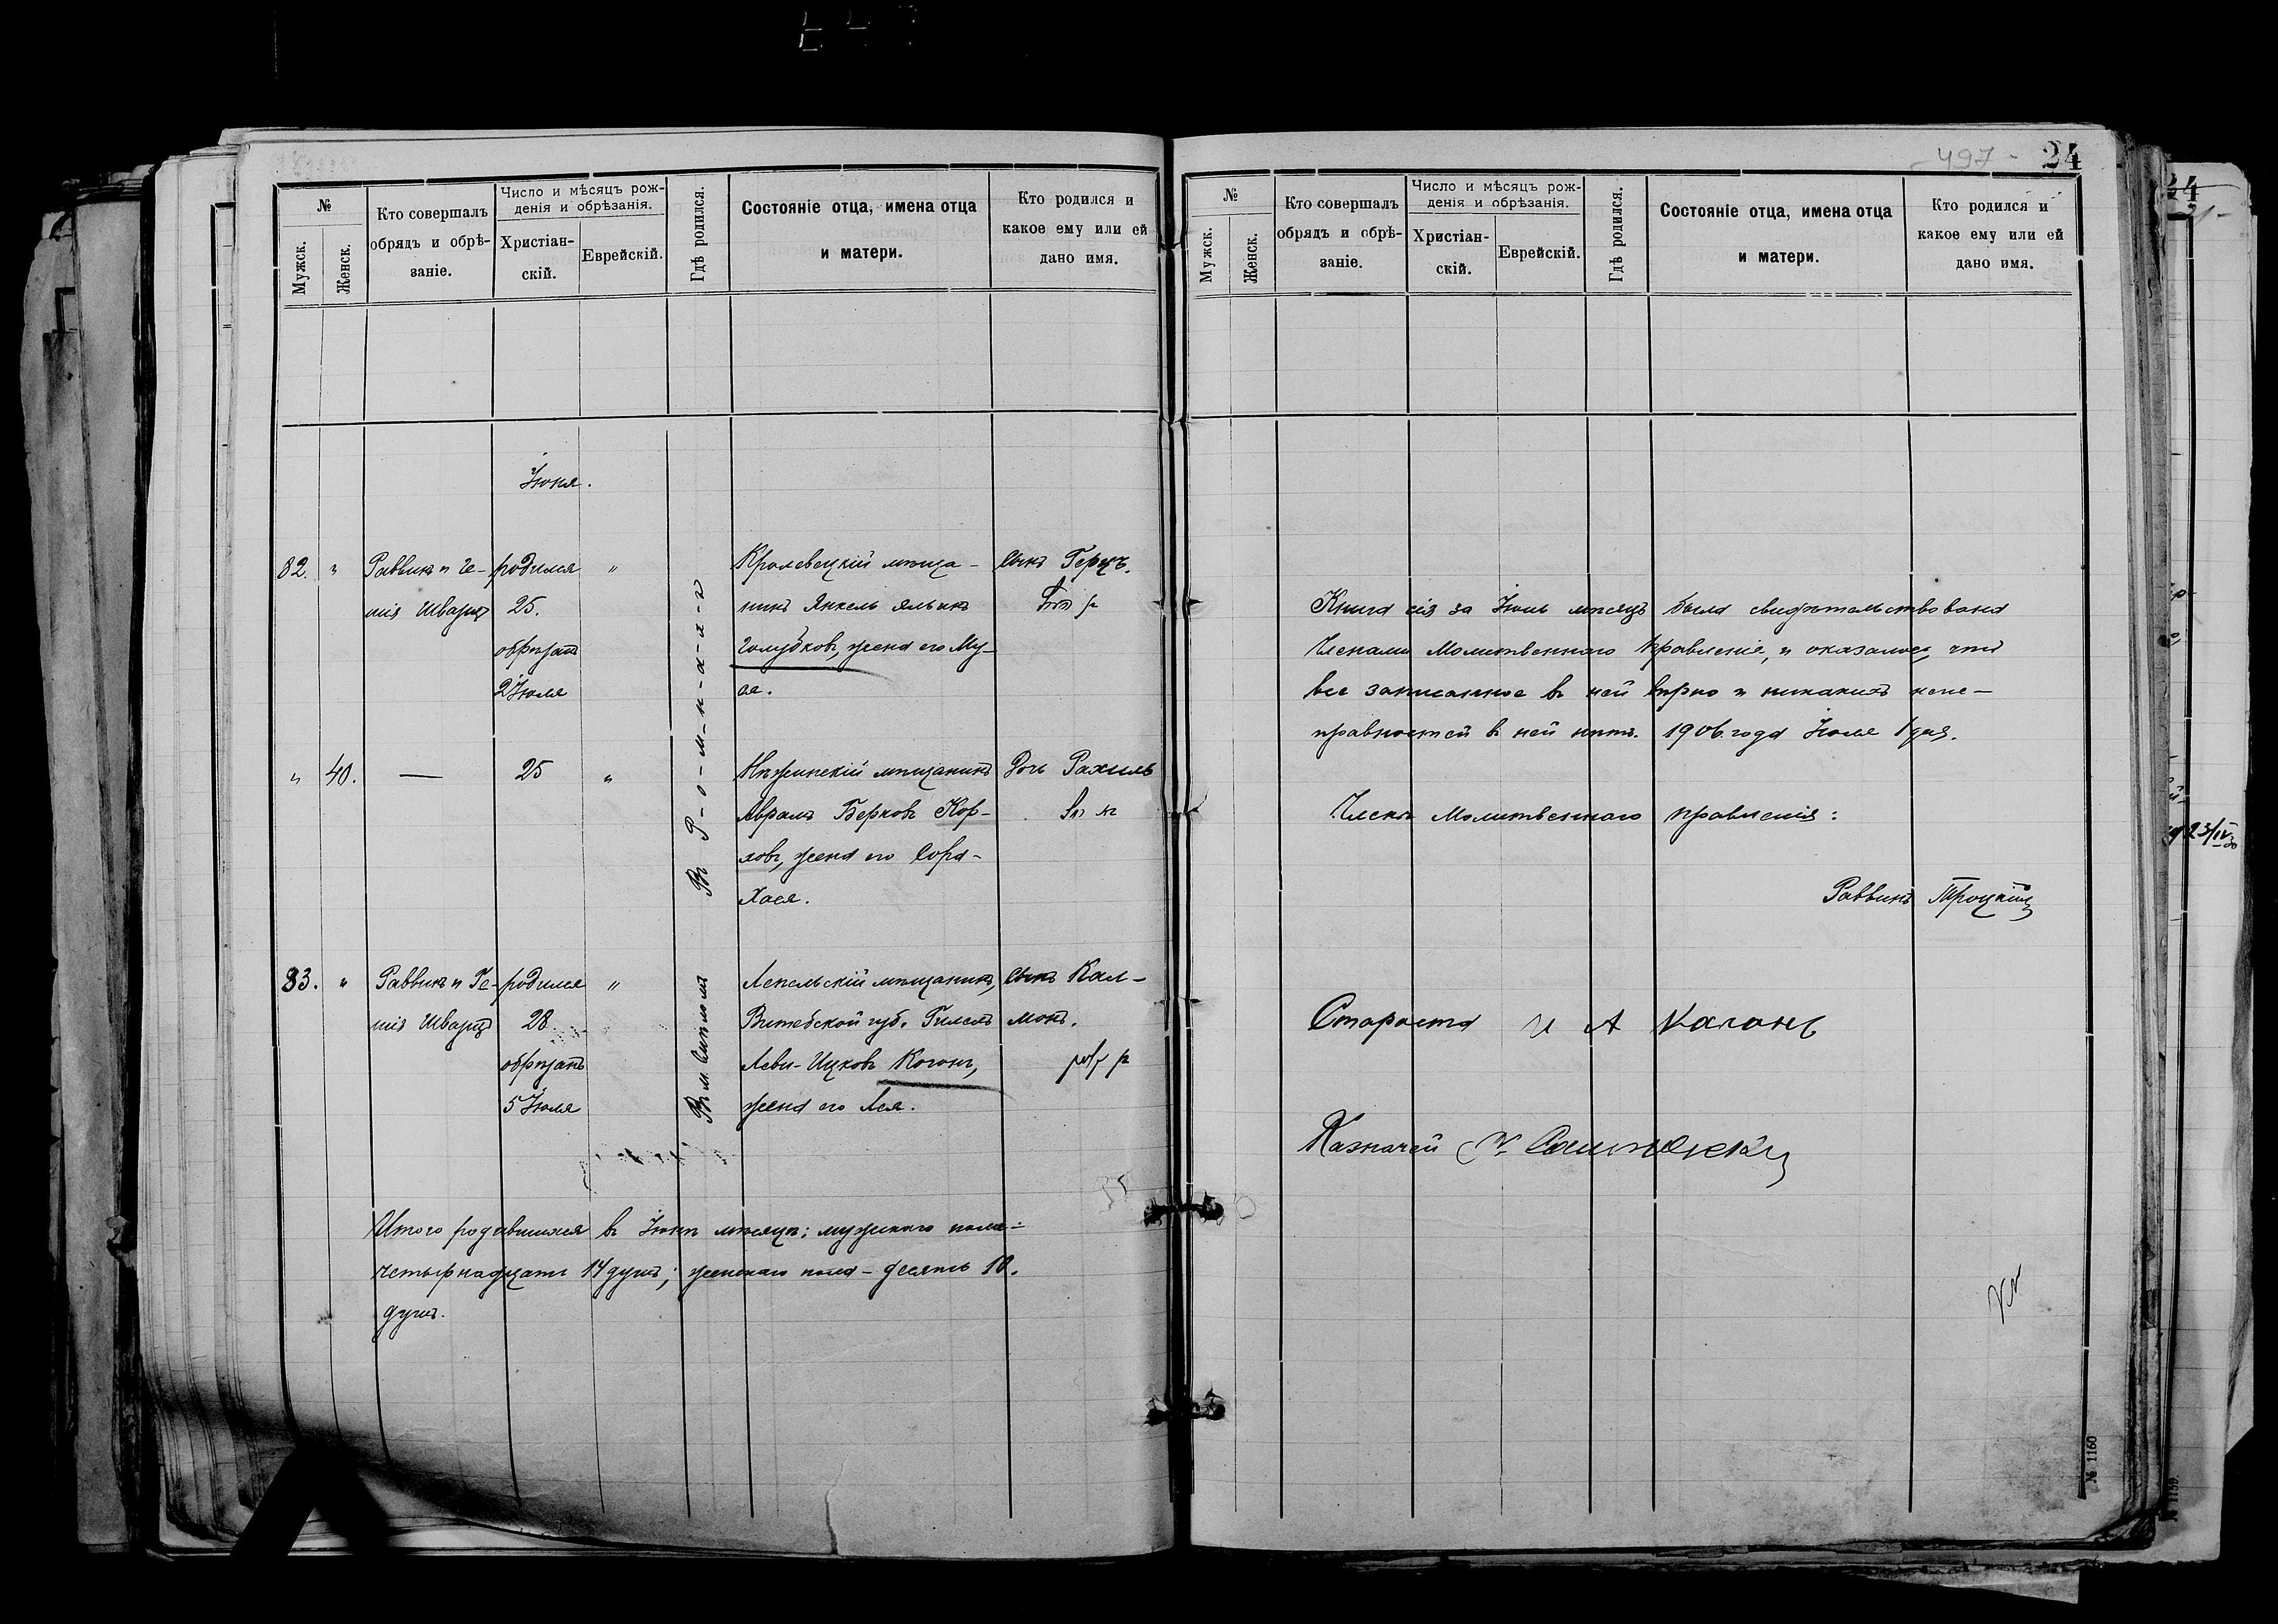 - 497 - 24
№
Мужск.
Женск.
Кто совершалъ
обрядъ и обрѣ-
заніе.
Число и мѣсяцъ рож-
денія и обрѣзанія.
Христіан-
скій.
Еврейскій.
Гдѣ родился.
Состояніе отца, имена отца
и матери.
Кто родился и
какое ему или ей
дано имя.
Іюня.
82.
"
Раввинъ и Ге-
шія Шварцъ
родился
25.
обрѣзанъ
2 Іюля
"
Въ Р-о-м-н-а-х-ъ
Кролевецкій мѣща-
нинъ Янкель
Голубковъ, жена его Му-
ся.
сынъ Герцъ.
"
40.
—
25
"
Нѣжинскій мѣщанинъ
Аврамъ Берковъ Кор-
ховъ, жена его Сора-
Хася.
Дочь Рахиль
83.
"
Раввинъ и Ге-
шія Шварцъ
родился
28
обрѣзанъ
5 Іюля
"
Въ м.
Лепельскій мѣщанинъ,
Витебской губ. Гилель
Леви-Ицковъ Коганъ,
жена его Лея.
сынъ Кал-
монъ.
Итого родившихся въ Іюнѣ мѣсяцѣ: мужскаго пола-
четырнадцать 14 душъ; женскаго пола - десять 10.
душъ.
№
Мужск.
Женск.
Кто совершалъ
обрядъ и обрѣ-
заніе.
Число и мѣсяцъ рож-
денія и обрѣзанія.
Христіан-
скій.
Еврейскій.
Гдѣ родился.
Состояніе отца, имена отца
и матери.
Кто родился и
какое ему или ей
дано имя.
Книга сія за Іюнь мѣсяцъ была свидѣтельствована
Членами Молитвеннаго правленія, и оказалось, что
все записанное въ ней вѣрно и никакихъ неис-
правностей въ ней нѣтъ. 1906 года Іюля 1 дня.
Члены Молитвеннаго правленія:
Раввинъ Троцкій
Староста И А Каганъ
Казначей
№ 1160
№ 1159